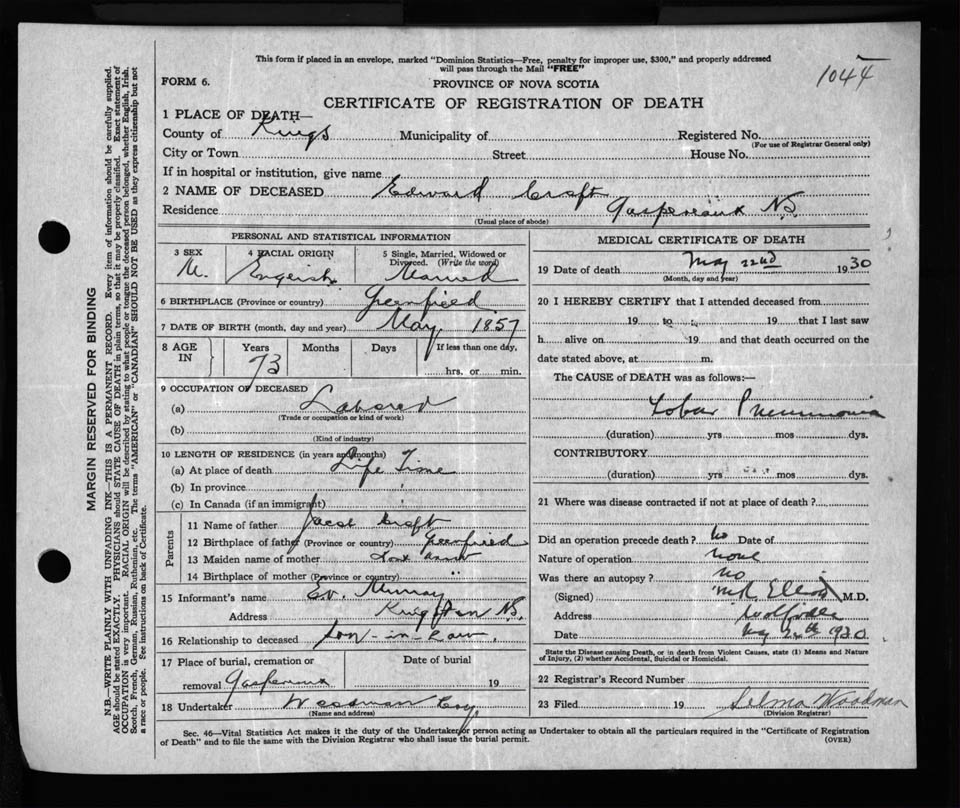 This form if placed in an envelope, marked "Dominion Statistics—Free, penalty for improper use, $300," and properly addressed
will pass through the Mail "FREE"
1044
FORM 6.
PROVINCE OF NOVA SCOTIA
CERTIFICATE OF REGISTRATION OF DEATH
1 PLACE OF DEATH—
County of Kings Municipality of Registered No.
(For use of Registrar General only)
City or Town Street House No.
If in hospital or institution, give name
2 NAME OF DECEASED Edward Croft
Residence Gaspereaux N.S.
(Usual place of abode)
PERSONAL AND STATISTICAL INFORMATION
3 SEX 4 RACIAL ORIGIN 5 Single, Married, Widowed or
Divorced. (Write the word)
M. English Married
6 BIRTHPLACE (Province or country) Greenfield
7 DATE OF BIRTH (month, day and year) May, 1857
8 AGE IN Years Months Days If less than one day,
73 hrs. or min.
9 OCCUPATION OF DECEASED
(a) Labored
(Trade or occupation or kind of work)
(b)
(Kind of industry)
10 LENGTH OF RESIDENCE (in years and months)
(a) At place of death Life Time
(b) In province
(c) In Canada (if an immigrant)
Parents
11 Name of father Jacob Croft
12 Birthplace of father (Province or country) Greenfield
13 Maiden name of mother
14 Birthplace of mother (Province or country) "
15 Informant's name Ev. Murray
Address N.S.
16 Relationship to deceased Son-in-law
17 Place of burial, cremation or Date of burial
removal Gaspereaux 19
18 Undertaker Woodman Coy,
(Name and address)
MEDICAL CERTIFICATE OF DEATH
19 Date of death May 22nd 1930
(Month, day and year)
20 I HEREBY CERTIFY that I attended deceased from
19 to 19 that I last saw
h alive on 19 and that death occurred on the
date stated above, at m.
The CAUSE of DEATH was as follows:—
Lobar Pneumonia
(duration) yrs mos dys.
CONTRIBUTORY
(duration) yrs mos dys.
21 Where was disease contracted if not at place of death?
Did an operation precede death? no Date of
Nature of operation none
Was there an autopsy? no
(Signed) Elliott M.D.
Address Wolfville
Date May 24th 1930
State the Disease causing Death, or in death from Violent Causes, state (1) Means and Nature
of Injury, (2) whether Accidental, Suicidal or Homicidal.
22 Registrar's Record Number
23 Filed 19 Selma Woodman
(Division Registrar)
Sec. 46—Vital Statistics Act makes it the duty of the Undertaker or person acting as Undertaker to obtain all the particulars required in the "Certificate of Registration
of Death" and to file the same with the Division Registrar who shall issue the burial permit.
(OVER)
MARGIN RESERVED FOR BINDING
N.B.—WRITE PLAINLY WITH UNFADING INK—THIS IS A PERMANENT RECORD. Every item of information should be carefully supplied.
AGE should be stated EXACTLY. PHYSICIANS should STATE CAUSE OF DEATH in plain terms, so that it may be properly classified. Exact statement of
OCCUPATION is very important. RACIAL ORIGIN will be described by stating to what people or tongue the deceased person belonged, whether English, Irish,
Scotch, French, German, Russian, Ruthenian, etc. The terms "AMERICAN" or "CANADIAN" SHOULD NOT BE USED as they express citizenship but not
a race or people. See instructions on back of Certificate.